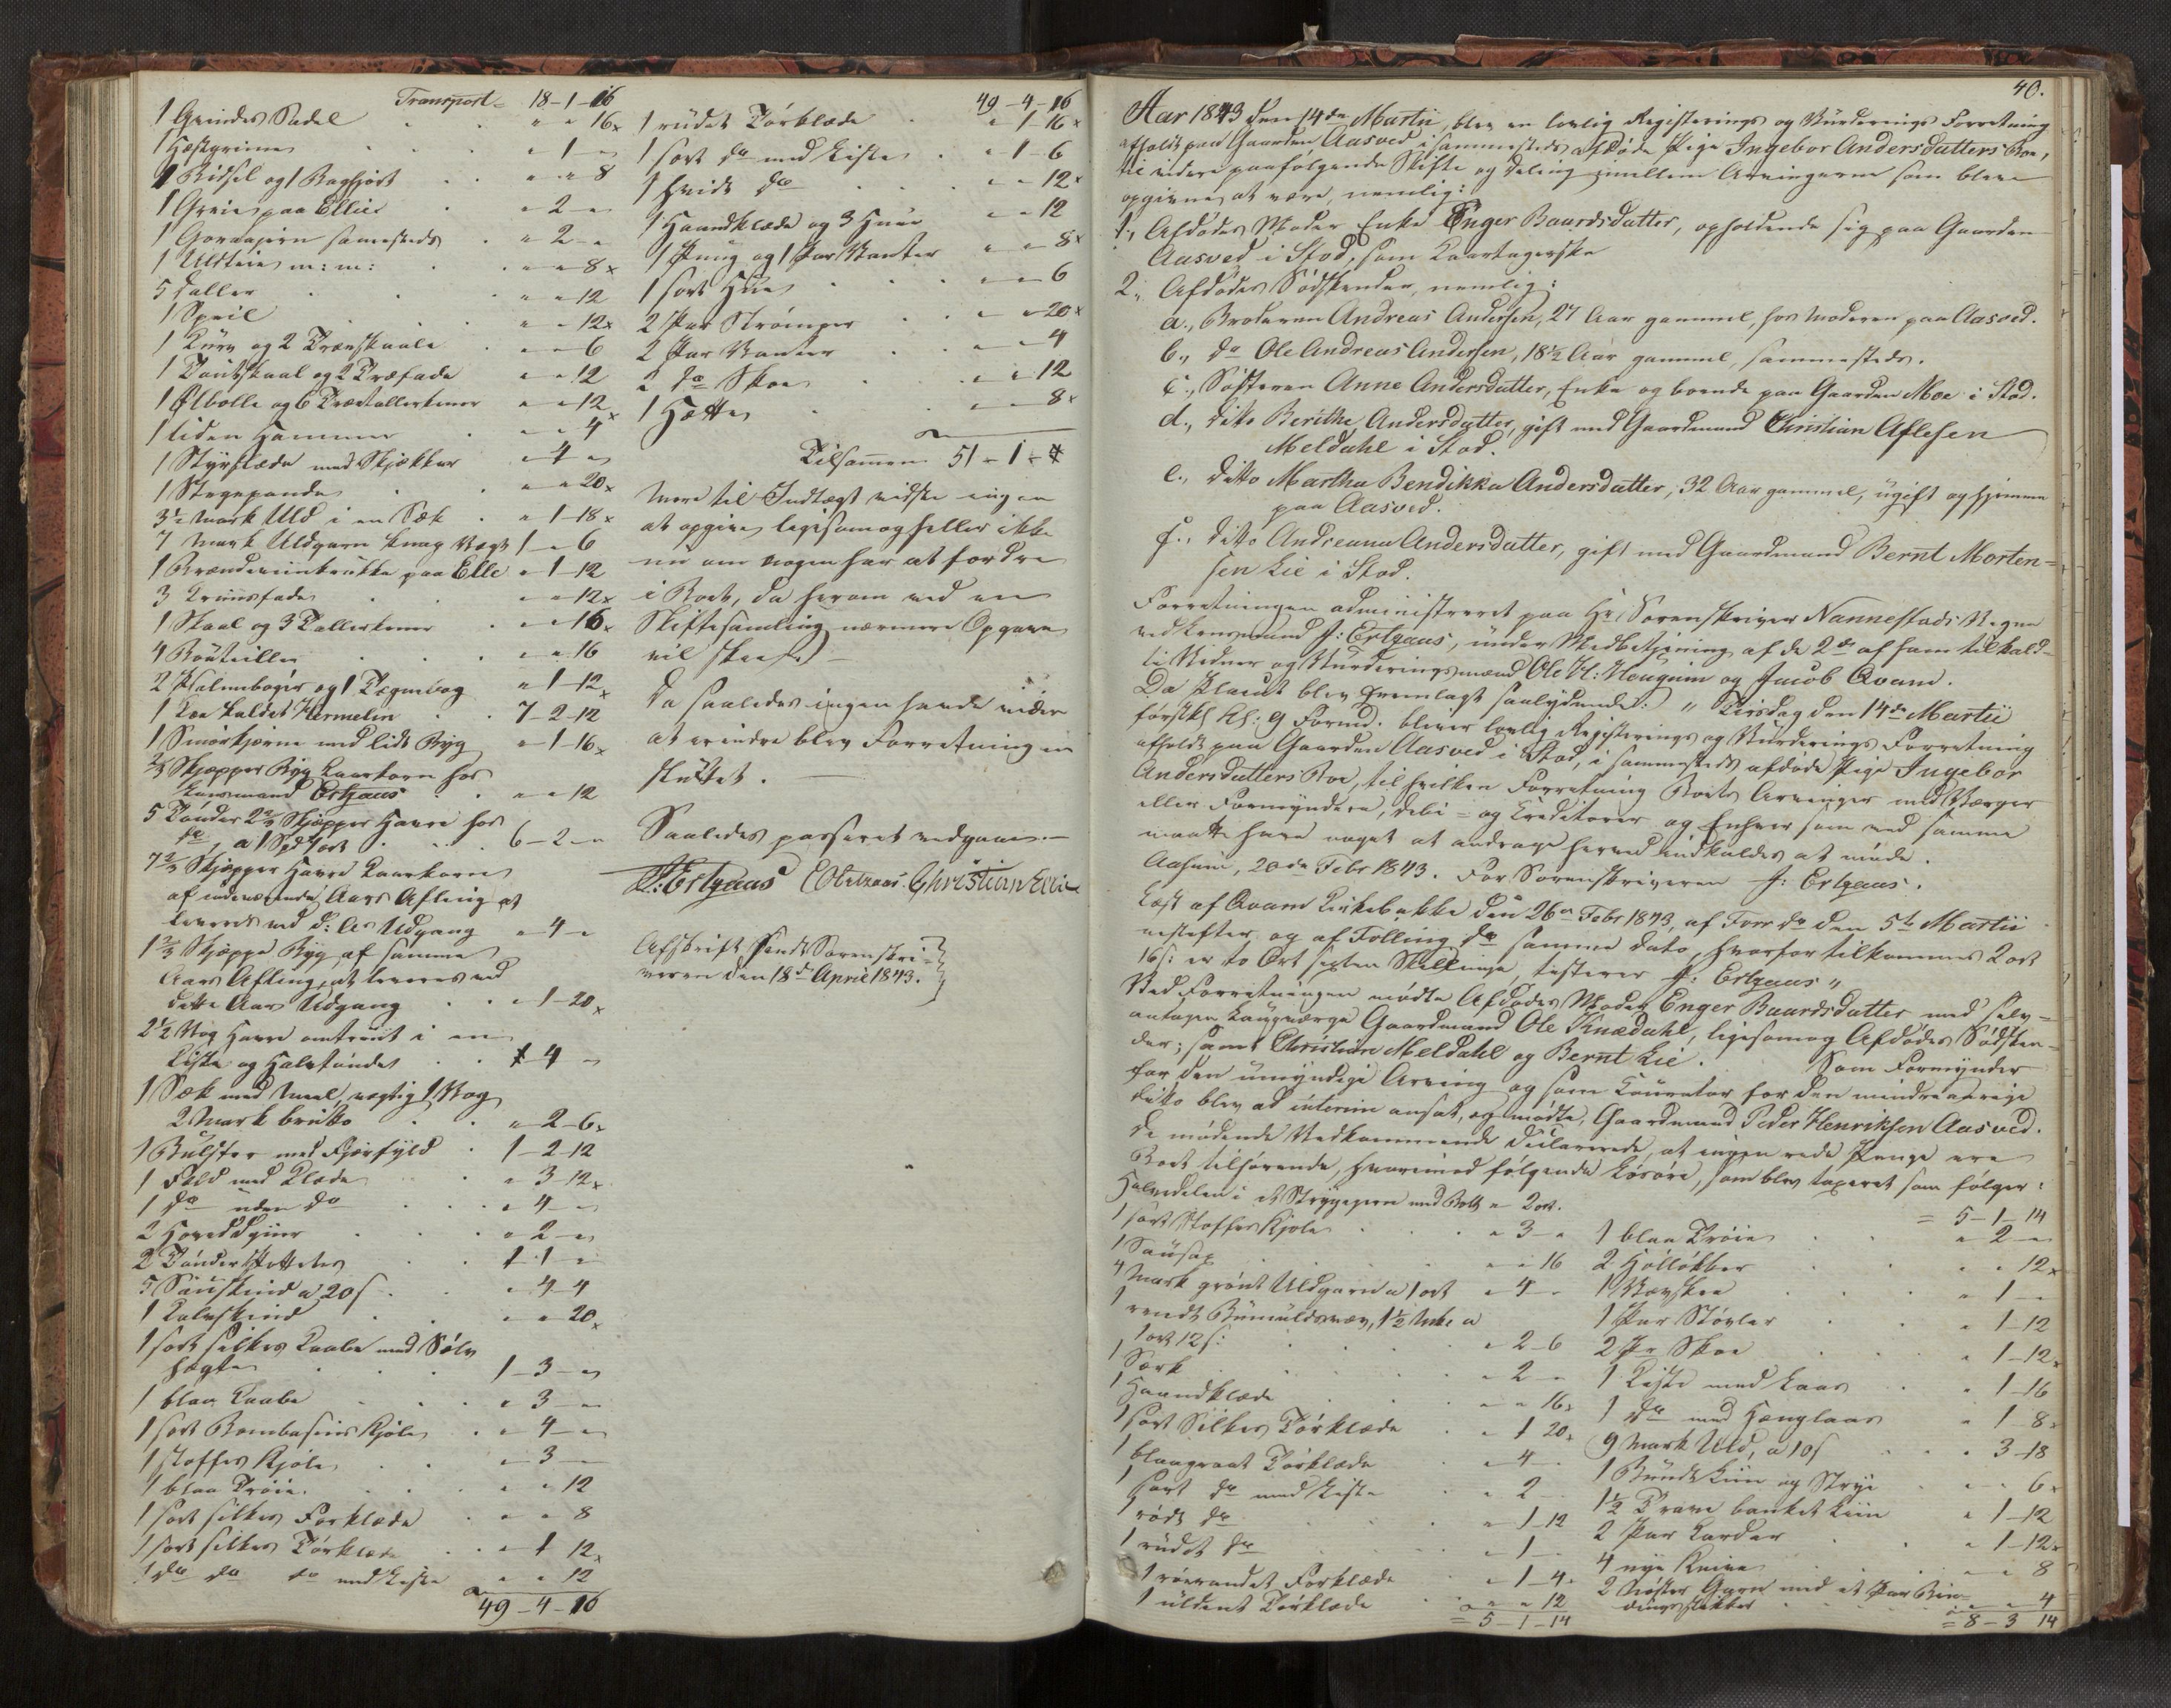 Transport 18-1-16
1 Qvindes Sadel " " 16
1 Hæstgrime " 1 "
1 Bidsel og 1 Baggjort " " 8
1 Greie paa Ellie " 2 "
1 samesteds " 2 "
1 m: m: " " 8
5 " " 12
1 Speil " " 12
1 Kurv og 2 Træskaale " " 6
1 og 2 Træfade " " 12
1 Ølbolle og 6 Trætallerkener " " 12
1 liden Hammer " " 4
1 med Skjækker " 4 "
1 Stegepande " " 20
3½ Mark Uld i en Sæk " 1-18
7 Mark Uldgarn knap Vægt 1 " 6
1 Brændeviinskrukke paa Elle " 1-12
3 fade " " 12
1 Skaal og 3 Tallerkener " " 16
4 Bouteiller " " 16
2 Psalmebøger og 1 Bog " 1-12
1 Koe kaldet Hermelin 7-2-12
1 Smørkjerne med lidt Byg " 1-16
⅔ Skjepper Byg Kaarkorn hos
Lensmand Ertzaas " " 12
5 Tønder 2⅔ Skjepper Havre hos
do, a 1 Spd 1 ort 6-2-"
7⅔ Skjepper Havre Kaarkorn
af indeværende Aars Afling at
leveres ved d: Aars Udgang " 4 "
1⅔ Skjeppe Byg af samme
Aars Afling, at leveres ved
dette Aars Udgang " 1-20
2½ Vog Havre omtrent i en
Kiste og Halvtønde 4 "
1 Sæk med Meel, vægtig 1 Vog
2 Mark brutto " 2-6
1 Bulster med Fjærfyld 1-2-12
1 Feld med Klæde " 3-12
1 do uden do " 4 "
2 Hoveddyner " 2 "
2 Tønder Potetes " 1 "
5 Saueskind a 20 s " 4-4
1 Kalvskind " " 20
1 sort silkes Kaabe med Sølv
hægte 1-3-"
1 blaa Kaabe " 3 "
1 sort Bombasins Kjole " 4 "
1 stoffes Kjole " 3 "
1 blaa Trøie " " 12
1 sort silkes Forklæde " " 8
1 sort silkes Tørklæde " 1 12
1 do do do med Liste " " 12
49-4-16
49-4-16
1 rudet Tørklæde " 1-16
1 sort do med Liste " 1-6
1 hvidt do " " 12
1 Haandklæde og 3 Huer " " 12
1 Pung og 1 Par Vanter " " 8
1 sort Hue " " 6
2 Par Strømper " " 20
2 Par Vanter " " 4
2 do Skoe " " 12
1 Hætte " " 8
Tilsamen 51-1-4
Mere til Indtægt vidste ingen
at opgive, ligesom og heller ikke
nu om nogen har at fordre
i Boet, da herom ved en
Skiftesamling nærmere Opgave
vil skee.
Da saaledes ingen havde videre
at erindre blev Forretningen
sluttet.
Saaledes passeret vedgaaes.
J: Ertzaas Christian
Afskrift sendt Sorenskri-
veren den 18de April 1843.
40.
Aar 1843 den 14de Martii, blev en lovlig Registerings og Vurderings Forretning
afholdt paa Gaarden Aasved i sammesteds afdøde Pige Ingebor Andersdatters Boe,
til videre paafølgende Skifte og Deling imellem Arvingerne som bleve
opgivne at være, nemlig:
1., Afdødes Moder Enke Enger Baardsdatter, opholdende sig paa Gaarden
Aasved i Stod, som Kaartagerske
2., Afdødes Sødskende, nemlig:
a., Broderen Andreas Andersen, 27 Aar gammel, hos Moderen paa Aasved.
b., do Ole Andreas Andersen, 18½ Aar gammel, sammesteds.
c., Søsteren Anne Andersdatter, Enke og boende paa Gaarden Moe i Stod.
d., ditto Berithe Andersdatter, gift med Gaardmand Christian Aflesen
Meldahl i Stod.
e., ditto Martha Bendikka Andersdatter, 32 Aar gammel, ugift og hjemme
paa Aasved.
f., ditto Andreana Andersdatter, gift med Gaardmand Bernt Morten-
sen Lie i Stod.
Forretningen administreret paa Hr Sorenskriver Nannestads Vegne
ved Lensmand J: Ertzaas, under Medbetjening af de 2de af ham tilkald-
te Vidner og Vurderingsmænd Ole Kl: Haugum og Jacob Qvam.
Da Placat blev fremlagt saalydende: " Tirsdag den 14de Martii
førstk: Kl: 9 Formd. bliver lovlig Registerings og Vurderings Forretning
afholdt paa Gaarden Aasved i Stod, i sammesteds afdøde Pige Ingebor
Andersdatters Boe, til hvilken Forretning Boets Arvinger med Værger
eller Formyndere, Debi- og Creditorer og Enhver som ved samme
maatte have noget at andrage herved indkaldes at møde.
Aasum, 20de Febr 1843. For Sorenskriveren J: Ertzaas.
Læst af Qvam Kirkebakke den 26de Febr 1843, af For do den 5te Martii
nestefter og af Følling do samme Dato, hvorfor tilkommer 2 ort
16 s: er to Ort sexten Skillinge, testerer J: Ertzaas "
Ved Forretningen mødte Afdødes Moder Enger Baardsdatter med selv-
antagen Laugværge Gaardmand Ole Knædahl, ligesom og Afdødes Sødsken-
der; samt Christian Meldahl og Bernt Lie. Som Formynder
for den umyndige Arving og som Curator for den mindreaarige
ditto blev ad interim ansat, og mødte, Gaardmand Peder Henriksen Aasved.
De mødende Vedkommende declarerede, at ingen rede Penge ere
Boet tilhørende, hvorimod følgende Løsøre, som blev taxeret som følger:
Halvdelen i et Strygejern med Bolt " 2 ort.
1 sort Stoffes Kjole " 3 "
1 Sausax " " 16
4 Mark grønt Uldgarn a 1 ort " 4 "
1 rendt Bomuldsvæv, 1½ Mrk a
1 ort 12 s: " 2-6
1 Særk " 2 "
1 Haandklæde " " 16
1 sort Silkes Tørklæde " 1 20
1 blaagraat Tørklæde " 4 "
1 sort do med Liste " 2
1 rødt do " 1-12
1 rudet do " 1 "
1 Forklæde " 1-4
1 uldent Tørklæde " " 12
= 5-1-14
= 5-1-14
1 blaa Trøie " 2 "
2 " " 12
1 Vævskee " 1 "
1 Par Støvler " 1-12
2 Pr Skoe " 1-12
1 Kiste med Laas " 1-16
1 do med Hænglaas " 1-8
9 Mark Uld, a 10 s " 3-18
1 Bundt Liin og Strye " " 6
1½ banket Liin " 1-12
2 Par Karder " 1-12
4 nye Knive " " 8
2 Nøster Garn med et Par Bin-
dingsstikker " " 4
= 8-3 14